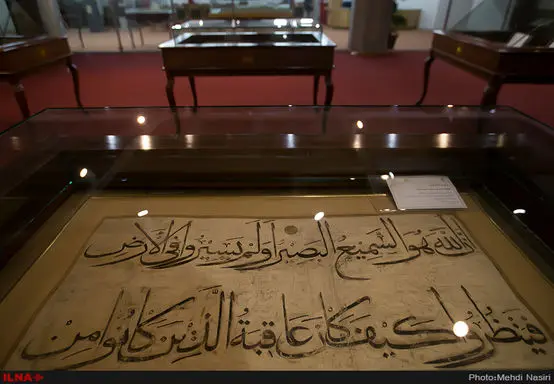 اِنَّ اللهَ هُوَ السَّمِيعُ الْبَصِيرُ اَوَلَمْ يَسِيرُوا فِى الْاَرْضِ
فَيَنْظُرُوا كَيْفَ كَانَ عَاقِبَةُ الَّذِينَ كَانُوا مِنْ
ILNA
Photo:Mehdi Nasiri